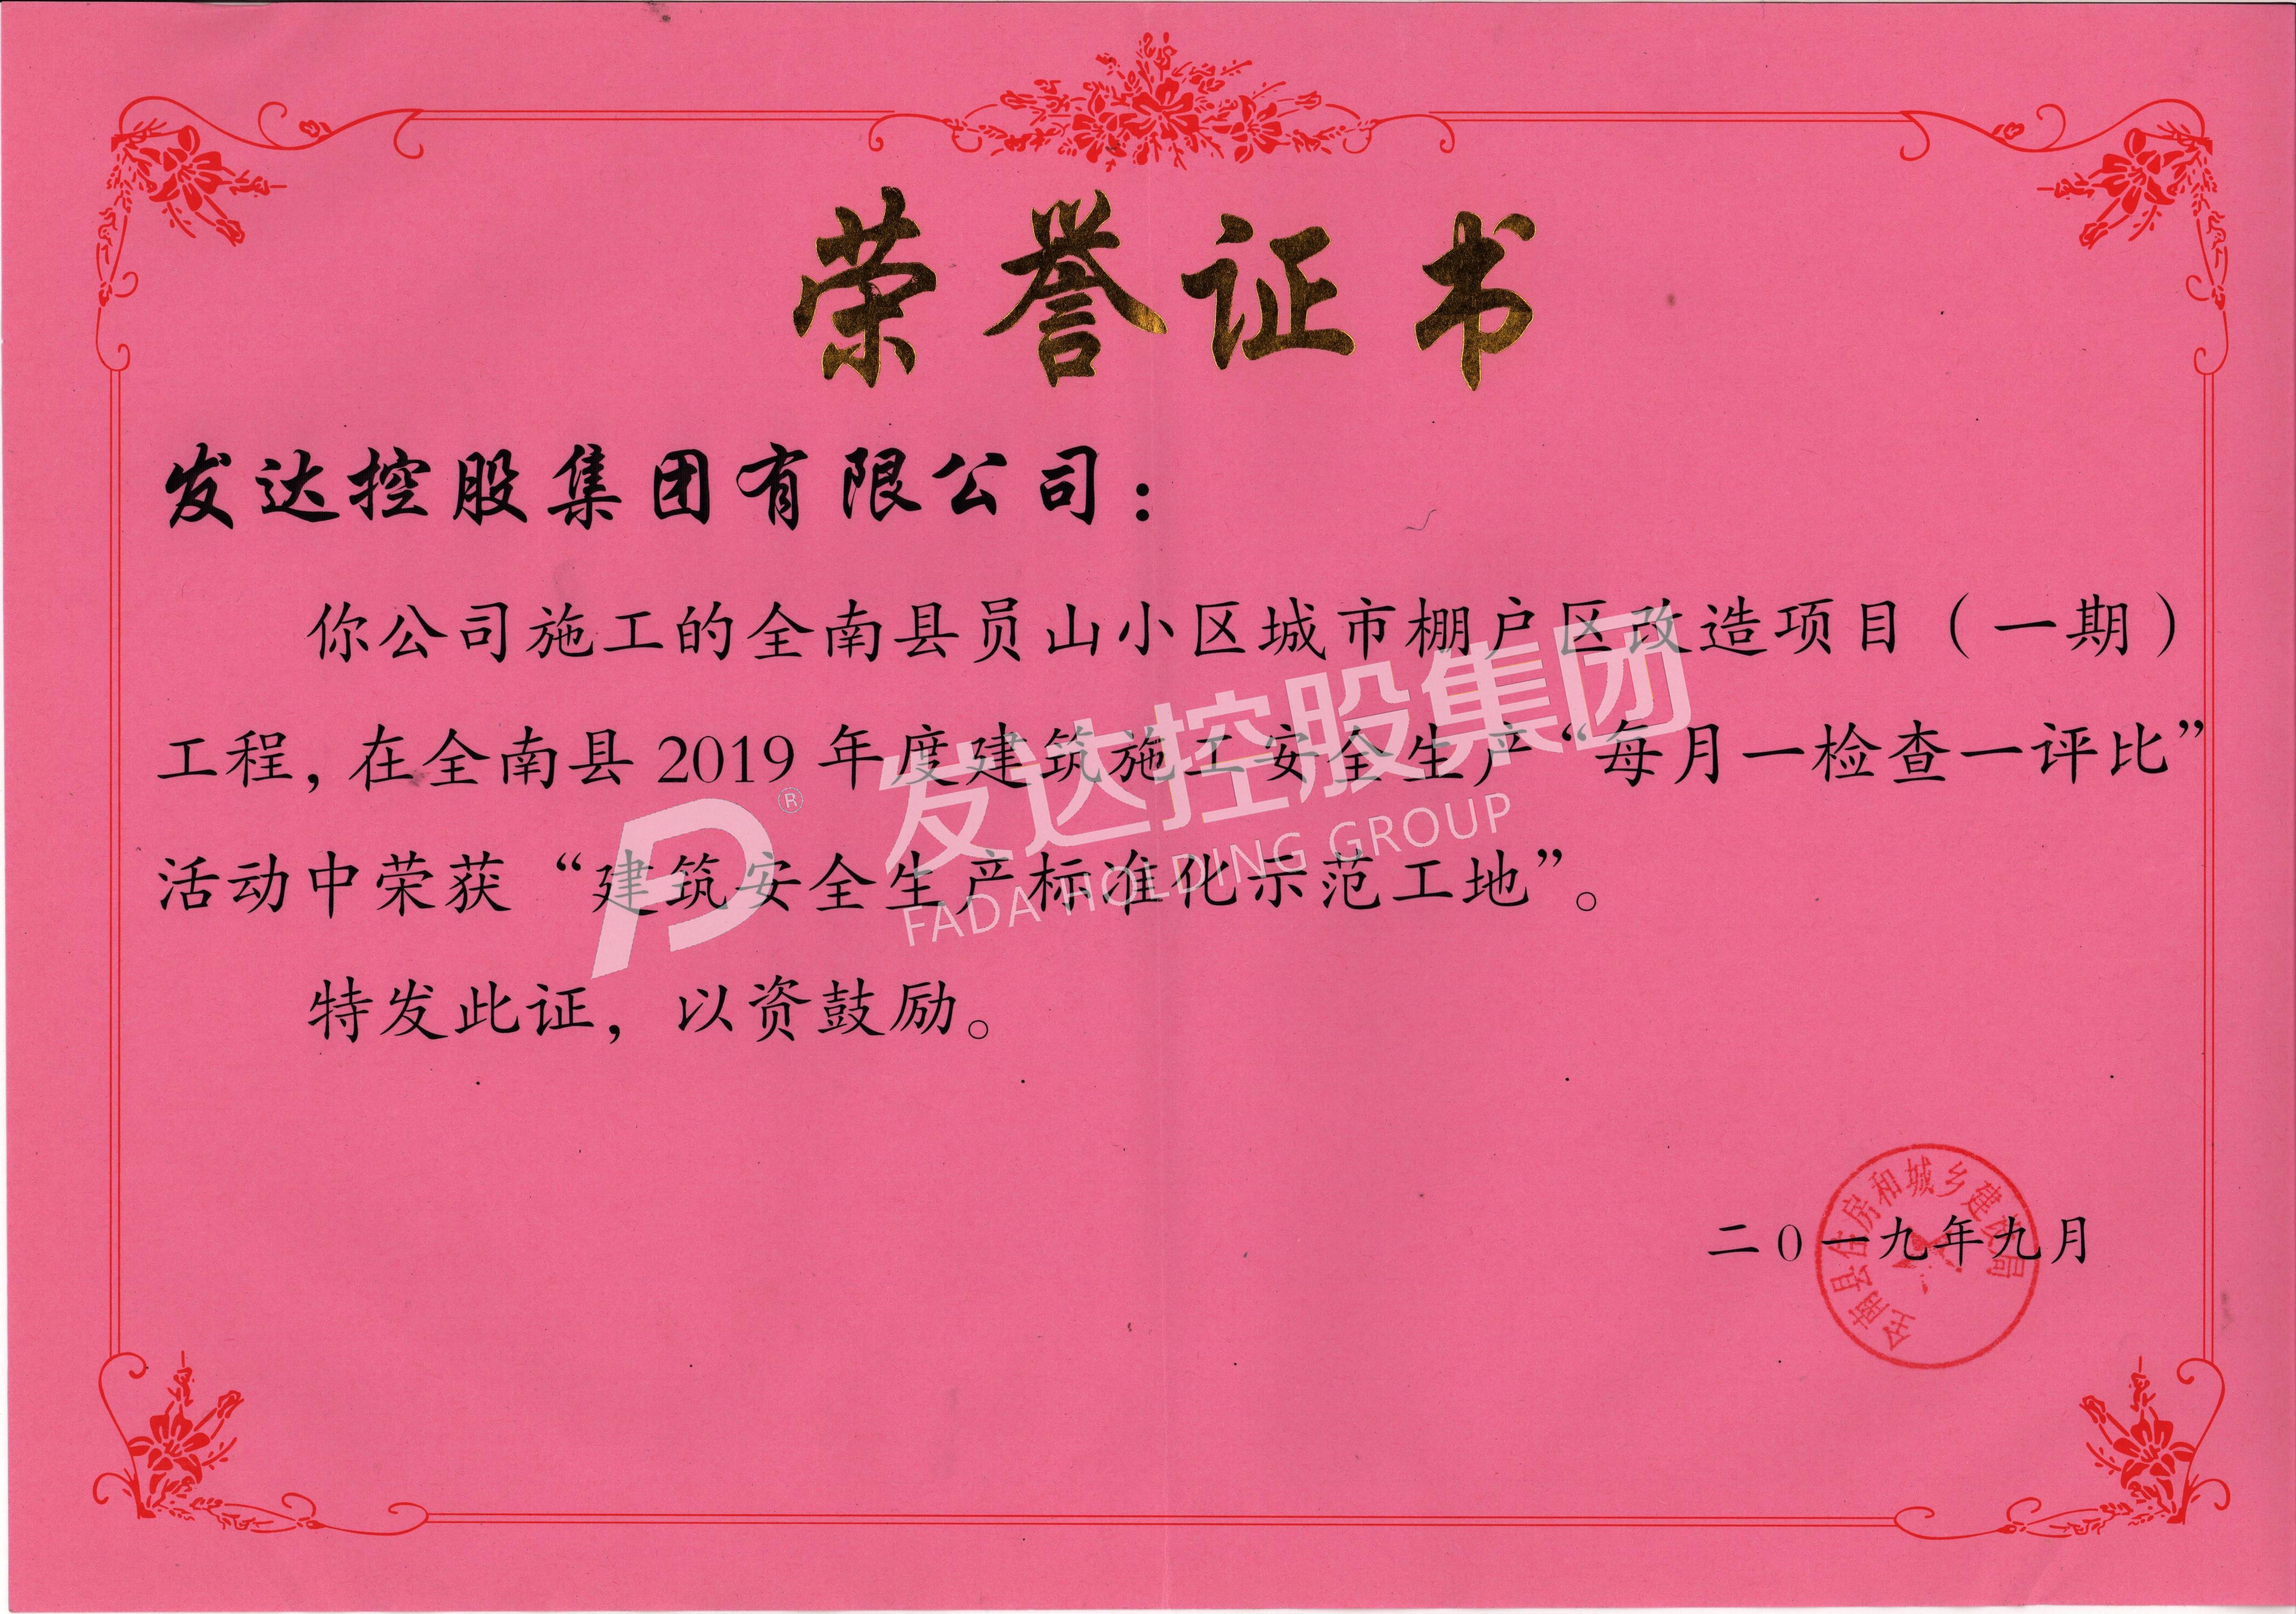 荣誉证书
发达控股集团有限公司：
你公司施工的全南县员山小区城市棚户区改造项目（一期）
工程，在全南县 2019 年度建筑施工安全生产“每月一检查一评比”
活动中荣获“建筑安全生产标准化示范工地”。
特发此证，以资鼓励。
发达控股集团
FADA HOLDING GROUP
®
二0一九年九月
全南县住房和城乡建设局